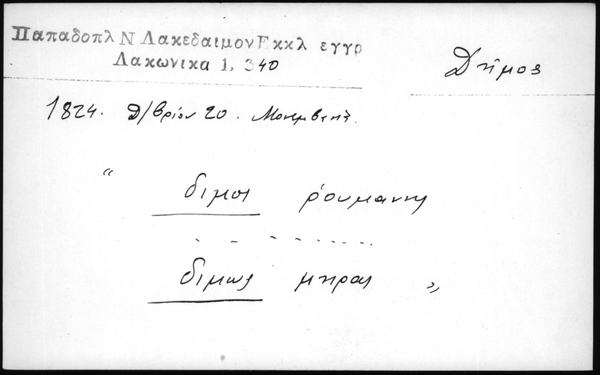 Παπαδοπλ Ν Λακεδαιμον Εκκλ εγγρ
Λακωνικα 1, 340
Δῆμος
1824. Δ/βρίου 20. Μονεμβ
"
διμος ρουμανης
διμως μπρας "